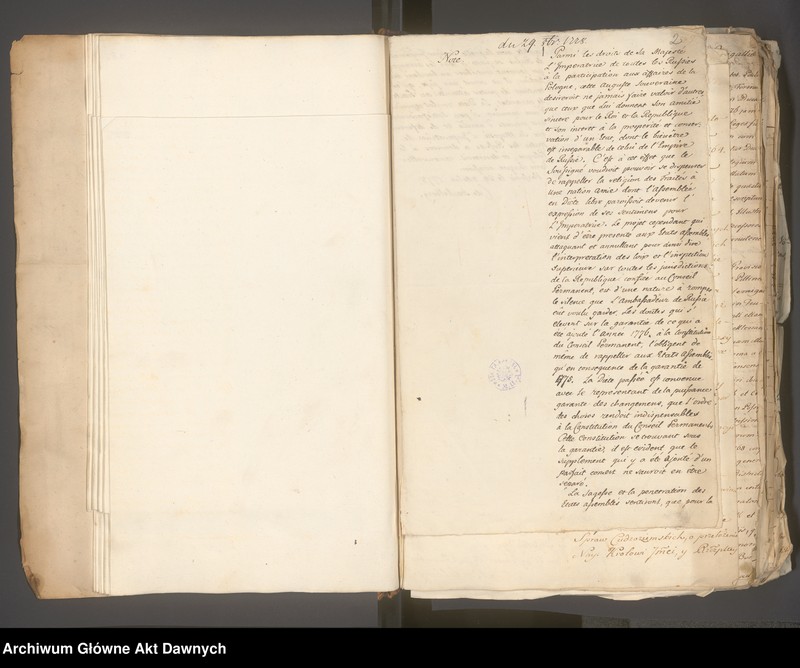 du 29. 8bre 1788
2
Note.
Parmi les droits de Sa Majesté
L'Imperatrice de toutes les Russies
à la participation aux affaires de la
Pologne, cette Auguste Souveraine
desireroit ne jamais faire valoir d'autres
que ceux que Lui donnent Son Amitié
sincere pour le Roi et la Republique
et Son interet à la prosperité et conser-
vation d'un Etat, dont le bienêtre
est inseparable de celui de l'Empire
de Russie. C'est à cet effet que le
Soussigné voudroit pouvoir se dispenser
de rappeller la religion des traités à
une nation amie dont l'Assemblée
en Diète libre paroissoit devenir l'
expression de ses sentimens pour
L'Imperatrice. Le projet cependant qui
vient d'être presenté aux Etats assemblés
attaquant et annullant pour ainsi dire
l'interpretation des loix et l'inspection
Superieure sur toutes les jurisdictions
de la Republique confiée au Conseil
Permanent, est d'une nature à rompre
le silence que l'Ambassadeur de Russie
eut voulu garder. Les doutes qui s'
elevent sur la garantie de ce qui a
été ajouté l'Année 1776. à la Constitution
du Conseil Permanent, l'obligent de
même de rappeller aux Etats Assemblés
qu'en consequence de la garantie de
1775. La Diète passée est convenue
avec le representant de la puissance
garante des changemens, que l'ordre
des choses rendoit indispensables
à la Constitution du Conseil Permanent.
Cette Constitution se trouvant sous
la garantie, il est evident que le
supplement qui y a été ajouté d'un
parfait concert ne sauroit en être
separé.
La Sagesse et la penetration des
Etats assemblés sentiront, que pour la
Nayj. Krolowi Jmci, y
Archiwum Główne Akt Dawnych